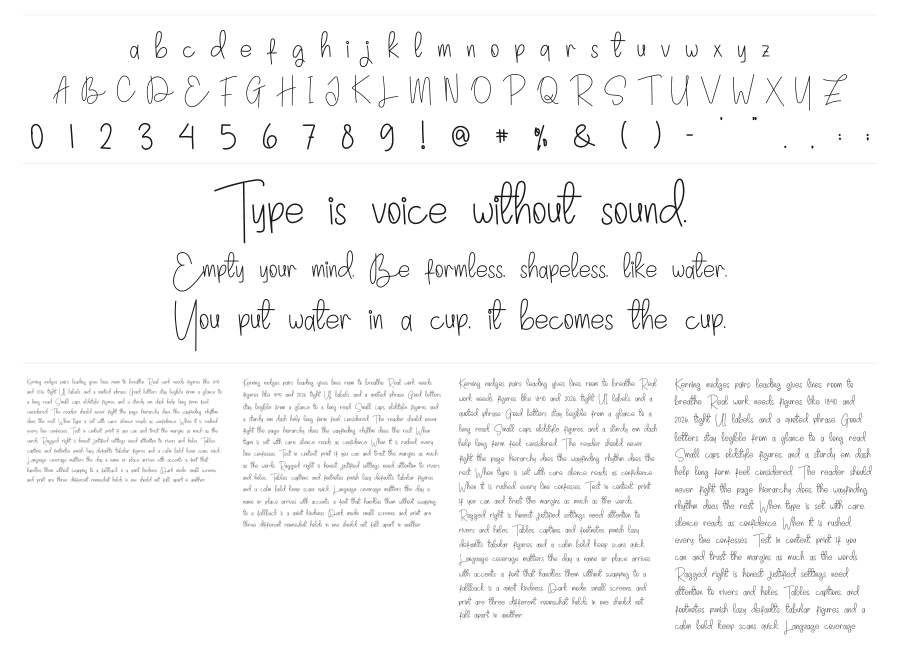 a b c d e f g h i j k l m n o p q r s t u v w x y z
A B C D E F G H I J K L M N O P Q R S T U V W X Y Z
0 1 2 3 4 5 6 7 8 9 ! @ # % & ( ) - ' " . , : ;
Type is voice without sound.
Empty your mind. Be formless, shapeless, like water.
You put water in a cup, it becomes the cup.
Kerning nudges pairs leading gives lines room to breathe Real work needs figures like 1840
and 2026 tight UI labels and a quoted phrase Good letters stay legible from a glance to
a long read Small caps oldstyle figures and a sturdy em dash help long form feel
considered The reader should never fight the page hierarchy does the wayfinding rhythm
does the rest When type is set with care silence reads as confidence When it is rushed
every line confesses Test in context print if you can and trust the margins as much as the
words Ragged right is honest justified settings need attention to rivers and holes Tables
captions and footnotes punish lazy defaults tabular figures and a calm bold keep scans quick
Language coverage matters the day a name or place arrives with accents a font that
handles them without swapping to a fallback is a quiet kindness Dark mode small screens
and print are three different roomswhat holds in one should not fall apart in another
Kerning nudges pairs leading gives lines room to breathe Real work needs
figures like 1840 and 2026 tight UI labels and a quoted phrase Good letters
stay legible from a glance to a long read Small caps oldstyle figures and
a sturdy em dash help long form feel considered The reader should never
fight the page hierarchy does the wayfinding rhythm does the rest When
type is set with care silence reads as confidence When it is rushed every
line confesses Test in context print if you can and trust the margins as much
as the words Ragged right is honest justified settings need attention to rivers
and holes Tables captions and footnotes punish lazy defaults tabular figures
and a calm bold keep scans quick Language coverage matters the day a
name or place arrives with accents a font that handles them without swapping
to a fallback is a quiet kindness Dark mode small screens and print are
three different roomswhat holds in one should not fall apart in another
Kerning nudges pairs leading gives lines room to breathe Real
work needs figures like 1840 and 2026 tight UI labels and a
quoted phrase Good letters stay legible from a glance to a
long read Small caps oldstyle figures and a sturdy em dash
help long form feel considered The reader should never
fight the page hierarchy does the wayfinding rhythm does the
rest When type is set with care silence reads as confidence
When it is rushed every line confesses Test in context print
if you can and trust the margins as much as the words
Ragged right is honest justified settings need attention to
rivers and holes Tables captions and footnotes punish lazy
defaults tabular figures and a calm bold keep scans quick
Language coverage matters the day a name or place arrives
with accents a font that handles them without swapping to a
fallback is a quiet kindness Dark mode small screens and
print are three different roomswhat holds in one should not
fall apart in another
Kerning nudges pairs leading gives lines room to
breathe Real work needs figures like 1840 and
2026 tight UI labels and a quoted phrase Good
letters stay legible from a glance to a long read
Small caps oldstyle figures and a sturdy em dash
help long form feel considered The reader should
never fight the page hierarchy does the wayfinding
rhythm does the rest When type is set with care
silence reads as confidence When it is rushed
every line confesses Test in context print if you
can and trust the margins as much as the words
Ragged right is honest justified settings need
attention to rivers and holes Tables captions and
footnotes punish lazy defaults tabular figures and a
calm bold keep scans quick Language coverage